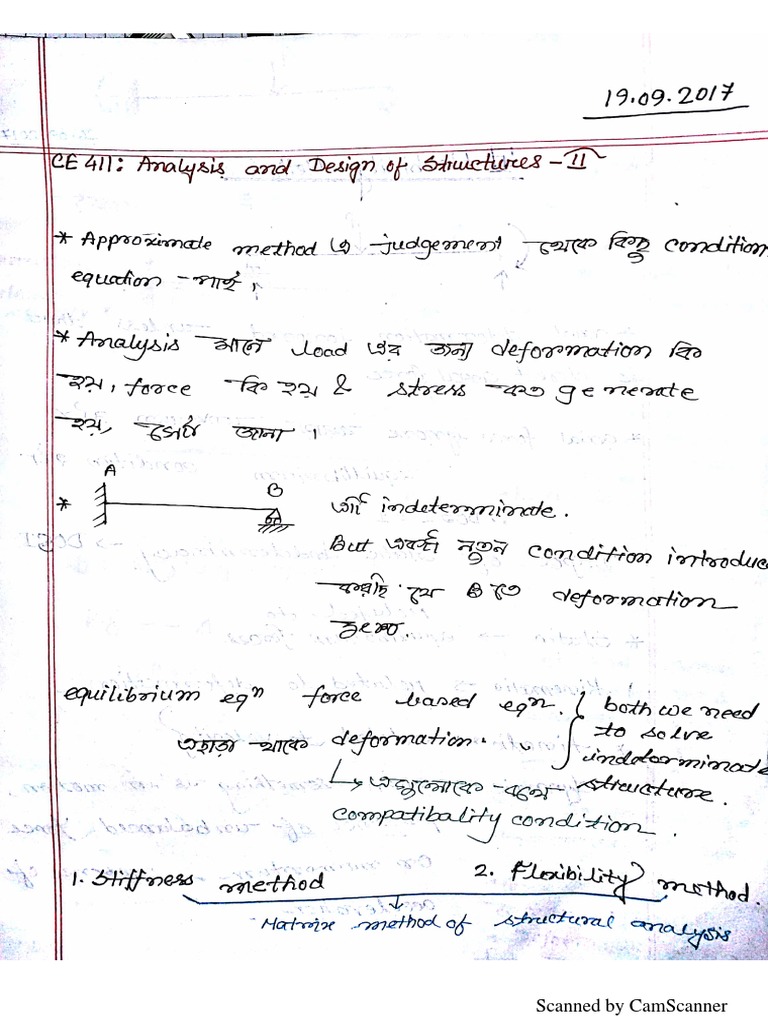 19.09.2017
CE 411: Analysis and Design of Structures - II
* Approximate method এ judgement থেকে কিছু condition
equation পাই।
* Analysis মানে load এর জন্য deformation কি
হয়, force কি হয় & stress কত generate
হয়, সেটা জানা।
A
B
* এটা indeterminate.
But একটা নতুন condition introduce
করছি যে B তে deformation
zero.
equilibrium eqn force based eqn. both we need
to solve
তাছাড়া থাকে deformation. indeterminate
structure.
এগুলোকে বলে
compatibality condition.
1. Stiffness method 2. Flexibility method.
Matrix method of structural analysis
Scanned by CamScanner